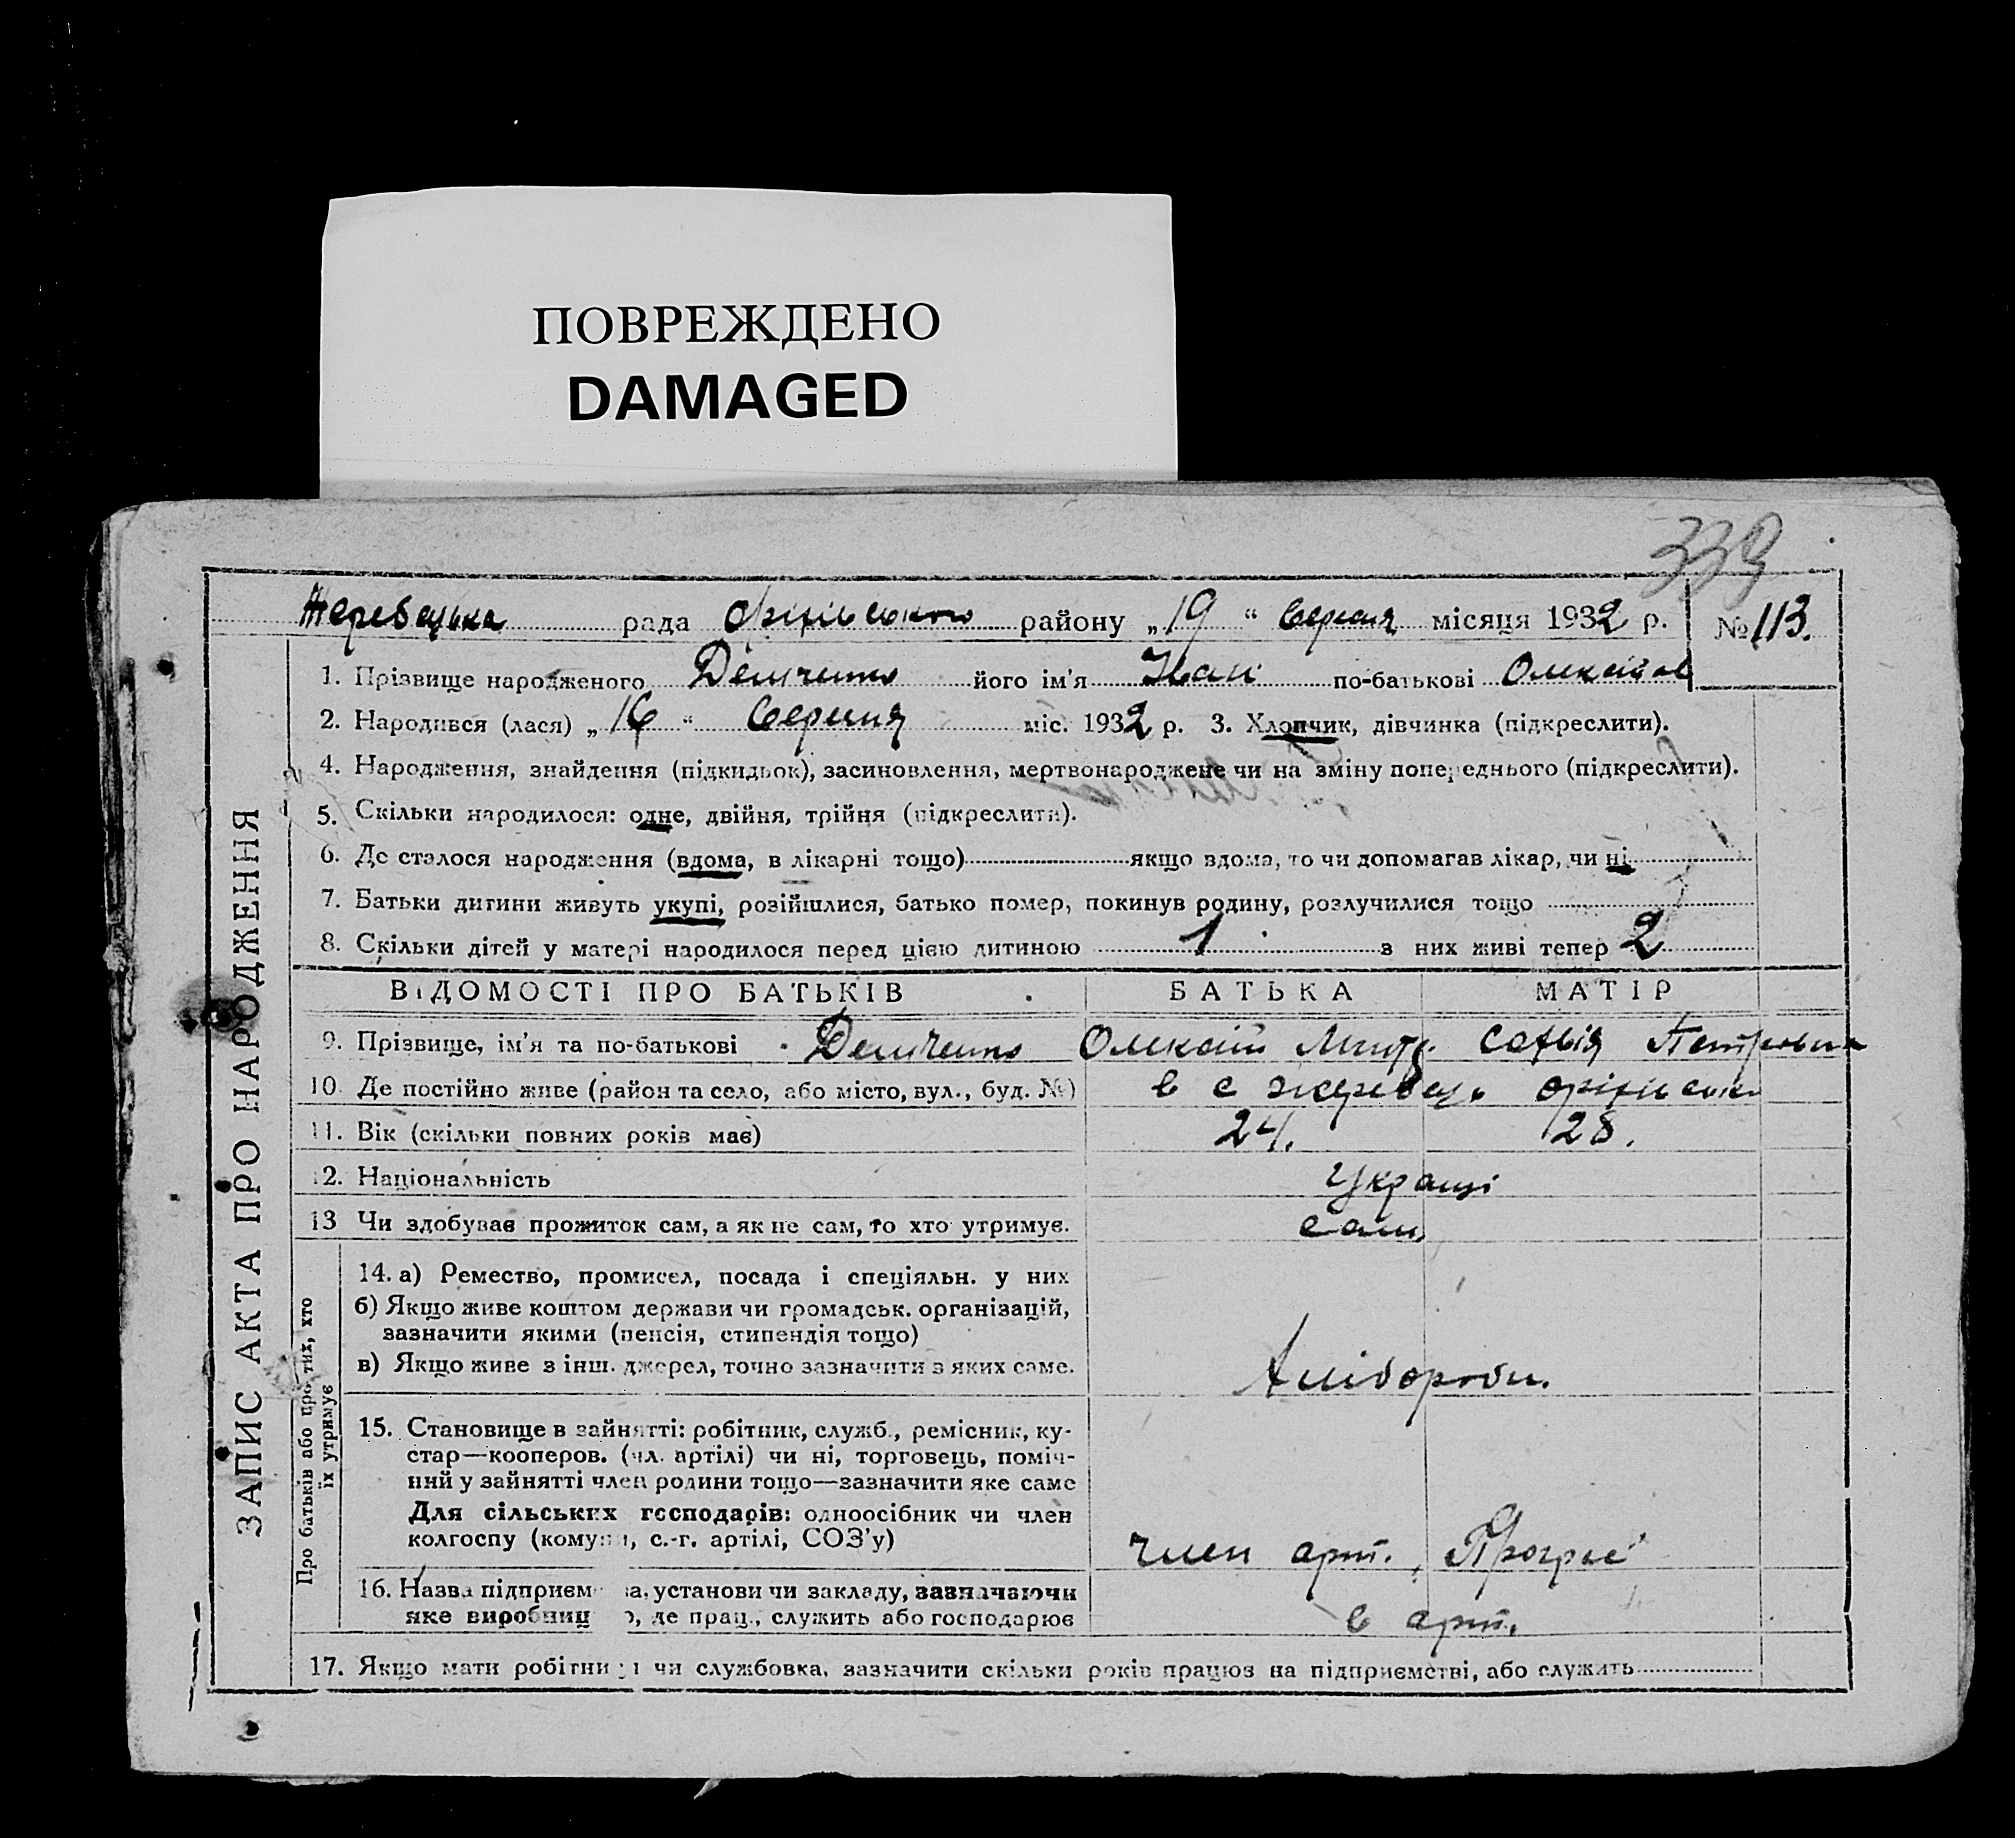 ПОВРЕЖДЕНО
DAMAGED
339
Жеребецька рада Оріхівського району „19“ Серпня місяця 1932 р. № 113.
1. Прізвище народженого Демченко його ім'я Іван по-батькові Олексійов
2. Народився (лася) „16“ Серпня міс. 1932 р. 3. Хлопчик, дівчинка (підкреслити).
4. Народження, знайдення (підкидьок), засиновлення, мертвонароджене чи на зміну попереднього (підкреслити).
5. Скільки народилося: одне, двійня, трійня (підкреслити).
6. Де сталося народження (вдома, в лікарні тощо) якщо вдома, то чи допомагав лікар, чи ні
7. Батьки дитини живуть укупі, розійшлися, батько помер, покинув родину, розлучилися тощо
8. Скільки дітей у матері народилося перед цією дитиною 1 з них живі тепер 2
ВІДОМОСТІ ПРО БАТЬКІВ БАТЬКА МАТІР
9. Прізвище, ім'я та по-батькові Демченко Олексій Софія Петровна
10. Де постійно живе (район та село, або місто, вул., буд. №) в с жеребець оріхівськ
11. Вік (скільки повних років має) 24. 28.
12. Національність Україці
13 Чи здобуває прожиток сам, а як не сам, то хто утримує. сам
ЗАПИС АКТА ПРО НАРОДЖЕННЯ
Про батьків або про тих, хто їх утримує
14. а) Ремество, промисел, посада і спеціяльн. у них
б) Якщо живе коштом держави чи громадськ. організацій,
зазначити якими (пенсія, стипендія тощо)
в) Якщо живе з інш. джерел, точно зазначити з яких саме. хліборобн.
15. Становище в зайнятті: робітник, служб., ремісник, ку-
стар—кооперов. (чл. артілі) чи ні, торговець, поміч-
ний у зайнятті член родини тощо—зазначити яке саме
Для сільських господарів: одноосібник чи член
колгоспу (комуни, с.-г. артілі, СОЗ'у) член арт. „Прогрес“
16. Назва підприєм а, установи чи закладу, зазначаючи
яке виробниц о, де прац., служить або господарює в арт.
17. Якщо мати робітни я чи службовка, зазначити скільки років працює на підприємстві, або служить